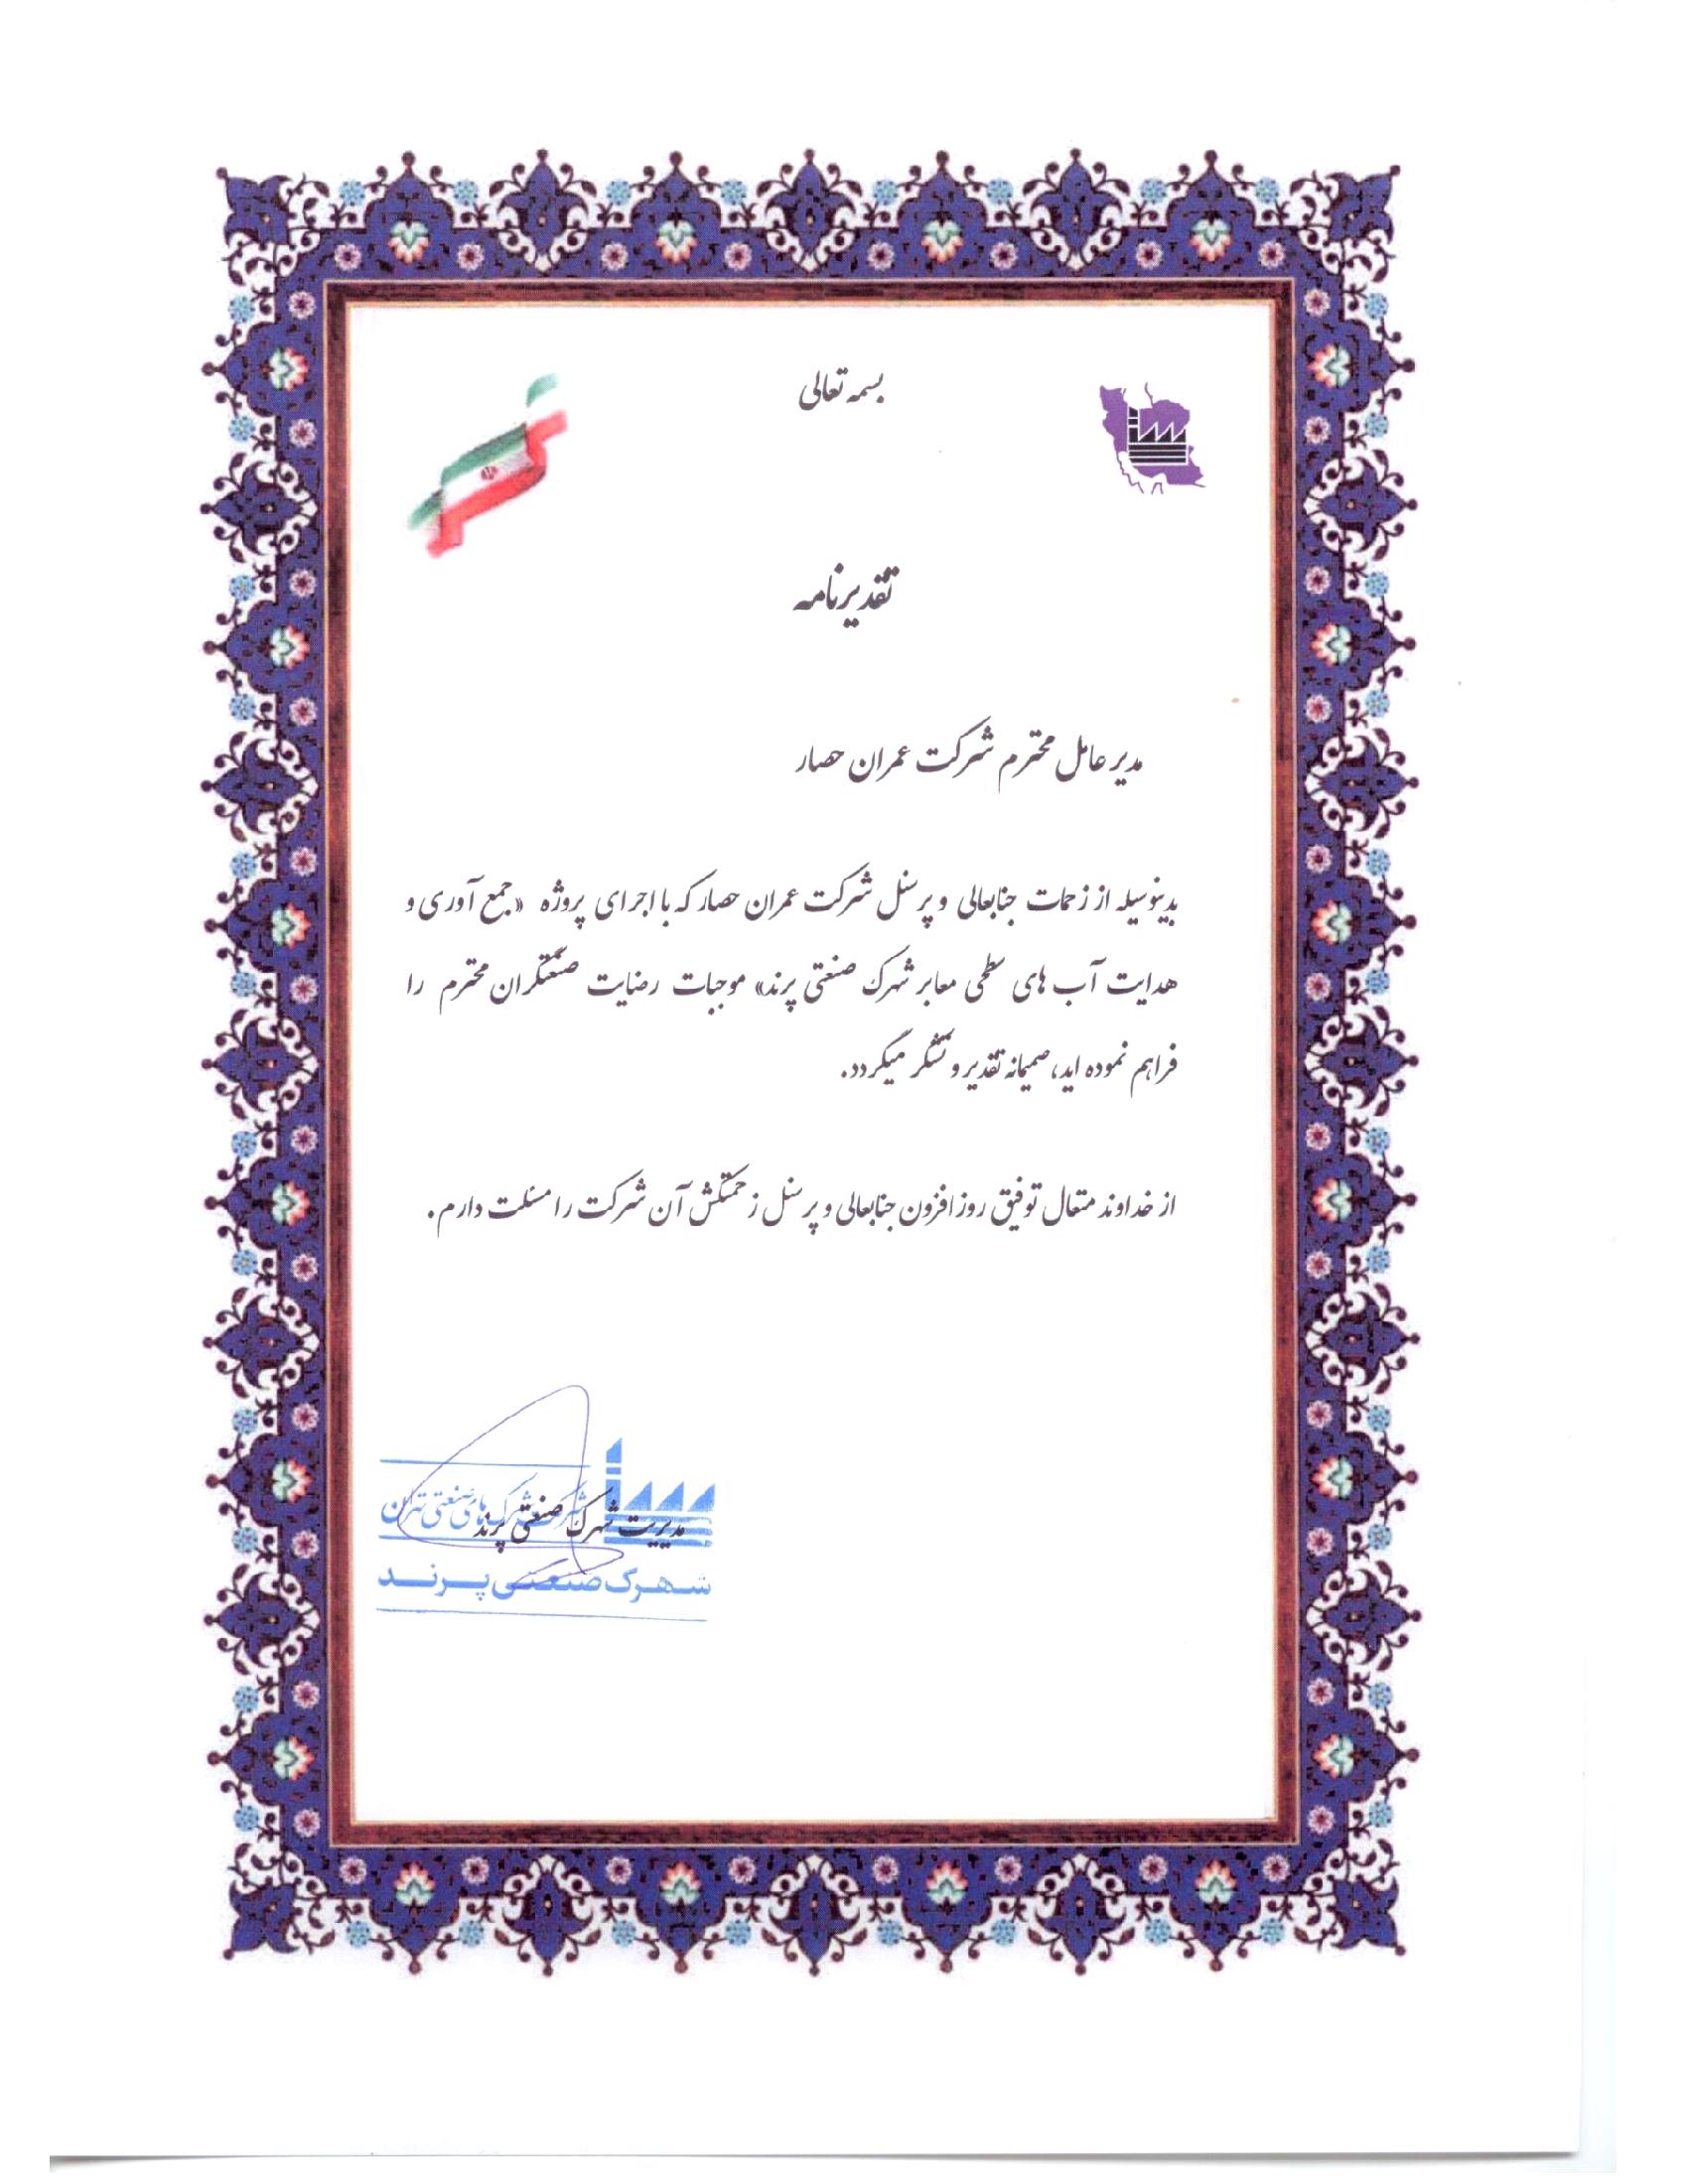 بسمه تعالی
تقدیرنامه
مدیر عامل محترم شرکت عمران حصار
بدینوسیله از زحمات جنابعالی و پرسنل شرکت عمران حصار که با اجرای پروژه «جمع آوری و
هدایت آب های سطحی معابر شهرک صنعتی پرند» موجبات رضایت صنعتگران محترم را
فراهم نموده اید، صمیمانه تقدیر و تشکر میگردد.
از خداوند متعال توفیق روز افزون جنابعالی و پرسنل زحمتکش آن شرکت را مسئلت دارم.
شرکت شهرک‌های صنعتی تهران
مدیریت شهرک صنعتی پرند
شهرک صنعتی پرند